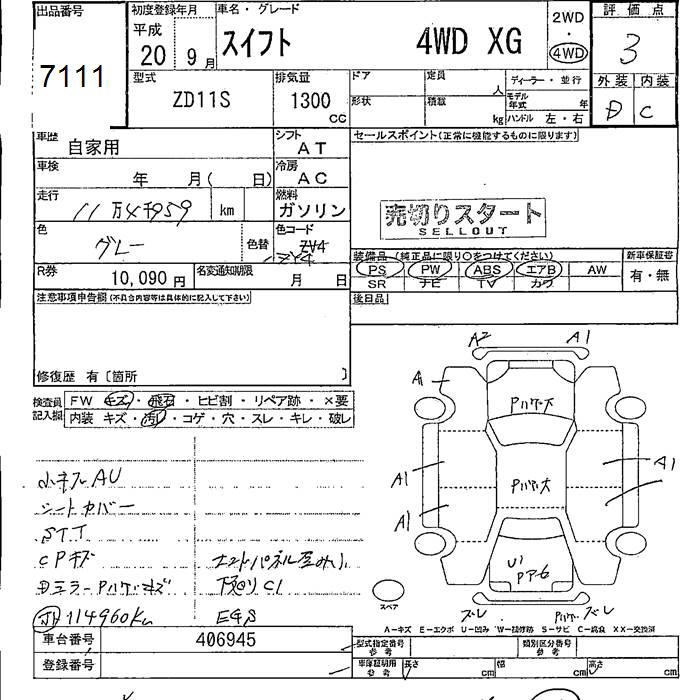 出品番号
7111
初度登録年月
平成
20年 9月
車名・グレード
スイフト 4WD XG
2WD
・
4WD
評価点
3
外装 内装
D C
型式
ZD11S
排気量
1300
CC
ドア
定員
人
形状
積載
kg
ディーラー・並行
モデル年式 年
ハンドル 左・右
車歴
自家用
シフト
AT
車検
年 月( 日)
冷房
AC
走行
11万4千959 km
燃料
ガソリン
色
グレー
色替
色コード
ZY4
ZY4
R券
10,090円
名変通知期限
月 日
セールスポイント(正常に機能するものに限ります)
売切りスタート
SELLOUT
装備品 (純正品に限り○をつけてください)
PS PW ABS エアB AW
SR ナビ TV カワ
新車保証書
有・無
後日品
注意事項申告欄(不具合内容等は具体的に記入して下さい)
修復歴 有〔箇所 〕
検査員記入欄
FW キズ・飛石・ヒビ割・リペア跡・×要
内装 キズ・汚れ・コゲ・穴・スレ・キレ・破レ
A2 A1
A1
A1
A1
A1
U1
スペア
ズレ
ズレ
シートカバー
STT
CPキズ
114960km
下廻りC1
EGS
A-キズ E-エクボ U-凹み W-補修跡 S-サビ C-腐食 XX-交換済
車台番号
406945
登録番号
型式指定番号
参考
類別区分番号
参考
車庫証明用
参考
長さ cm
幅 cm
高さ cm